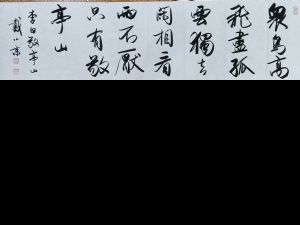 衆鳥高
飛盡孤
雲獨去
閑相看
兩不厭
只有敬
亭山
李白敬亭山
戴小京